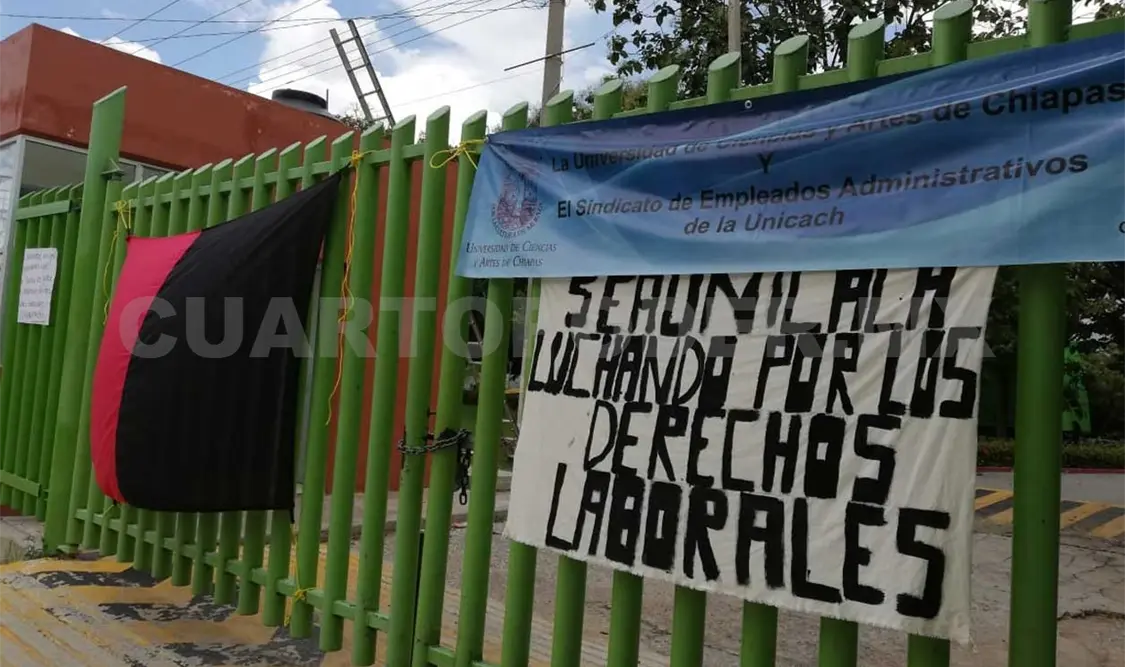 La Universidad de Ciencias y Artes de Chiapas
Y
El Sindicato de Empleados Administrativos
de la Unicach
UNIVERSIDAD DE CIENCIAS
Y ARTES DE CHIAPAS
SEAUNICACH
LUCHANDO POR LOS
DERECHOS
LABORALES
CUARTOPODER.MX